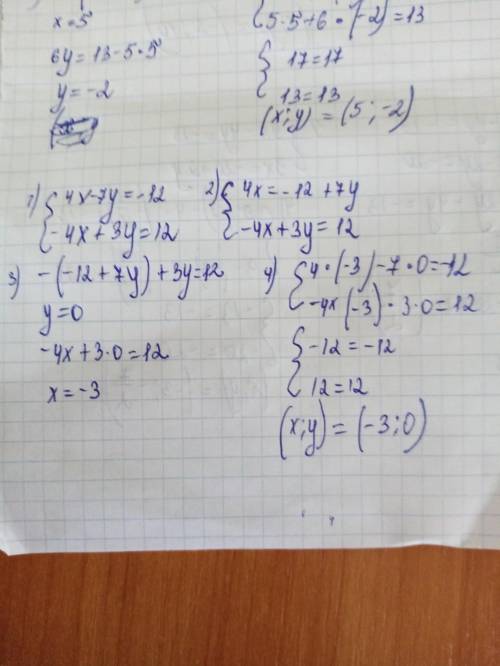 x=5
6y=13-5·5
y=-2
{5·5+6·(-2)=13
17=17
13=13
(x;y)=(5;-2)
1) {4x-7y=-12
-4x+3y=12
2) {4x=-12+7y
-4x+3y=12
3) -(-12+7y)+3y=12
y=0
-4x+3·0=12
x=-3
4) {4·(-3)-7·0=-12
-4x(-3)·3·0=12
{-12=-12
12=12
(x;y)=(-3;0)